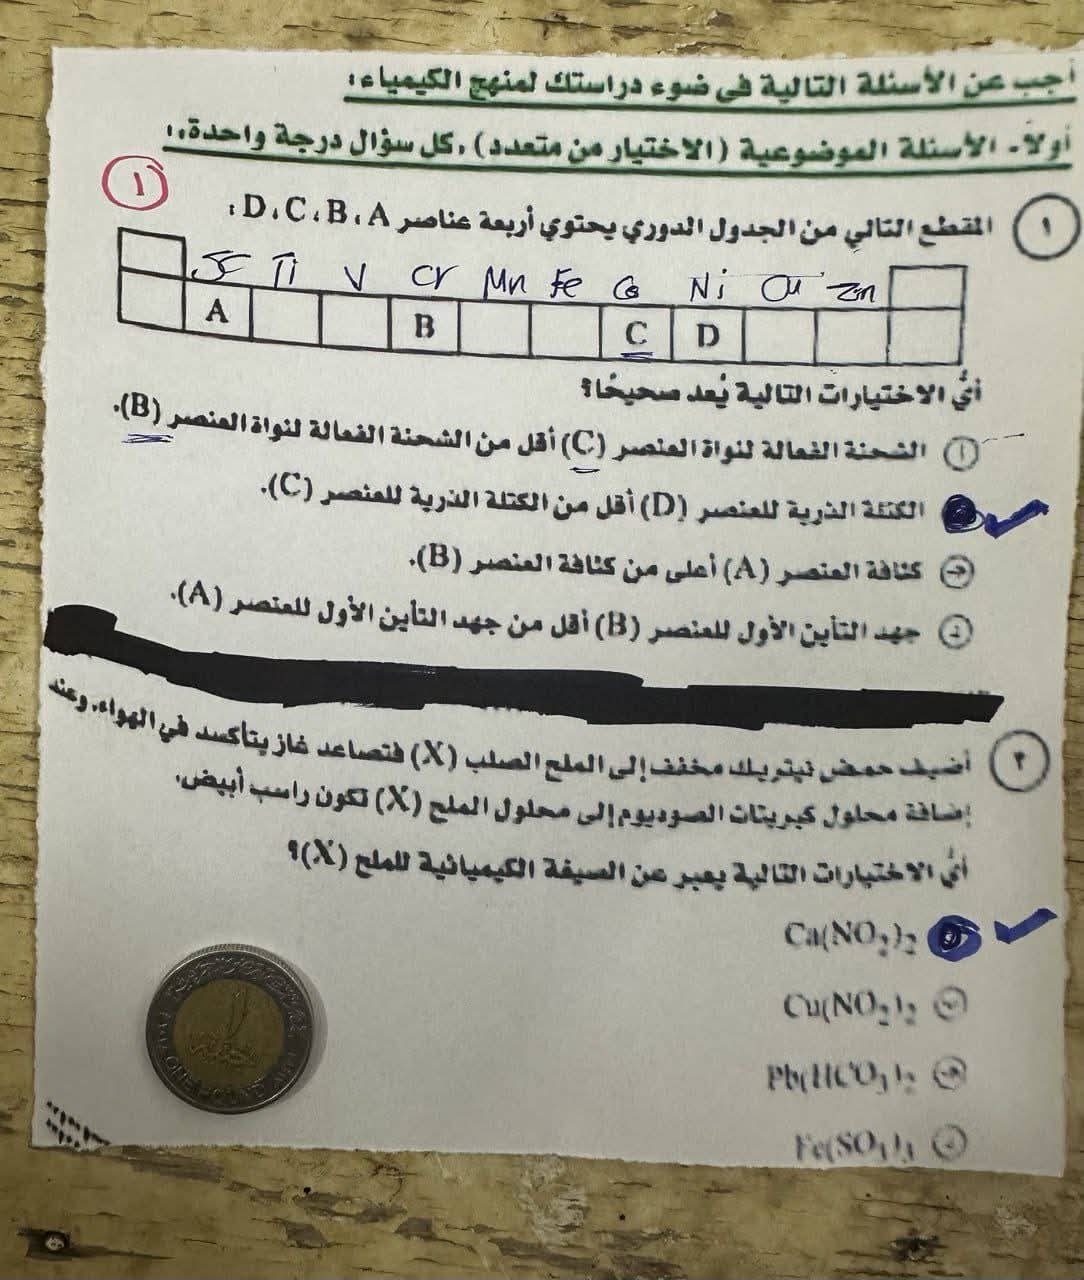 أجب عن الأسئلة التالية في ضوء دراستك لمنهج الكيمياء:
أولاً- الأسئلة الموضوعية (الاختيار من متعدد)، كل سؤال درجة واحدة:
١
١ المقطع التالي من الجدول الدوري يحتوي أربعة عناصر D، C، B، A:
Sc Ti V Cr Mn Fe Co Ni Cu Zn
A B C D
أيُّ الاختيارات التالية يُعد صحيحًا؟
أ الشحنة الفعالة لنواة العنصر (C) أقل من الشحنة الفعالة لنواة العنصر (B).
الكتلة الذرية للعنصر (D) أقل من الكتلة الذرية للعنصر (C).
ج كثافة العنصر (A) أعلى من كثافة العنصر (B).
د جهد التأين الأول للعنصر (B) أقل من جهد التأين الأول للعنصر (A).
٢ أضيف حمض نيتريك مخفف إلى الملح الصلب (X) فتصاعد غاز يتأكسد في الهواء، وعند
إضافة محلول كبريتات الصوديوم إلى محلول الملح (X) تكون راسب أبيض،
أيُّ الاختيارات التالية يعبر عن الصيغة الكيميائية للملح (X)؟
Ca(NO₂)₂
Cu(NO₂)₂ ب
Pb(HCO₃)₂ ج
د
ONE POUND